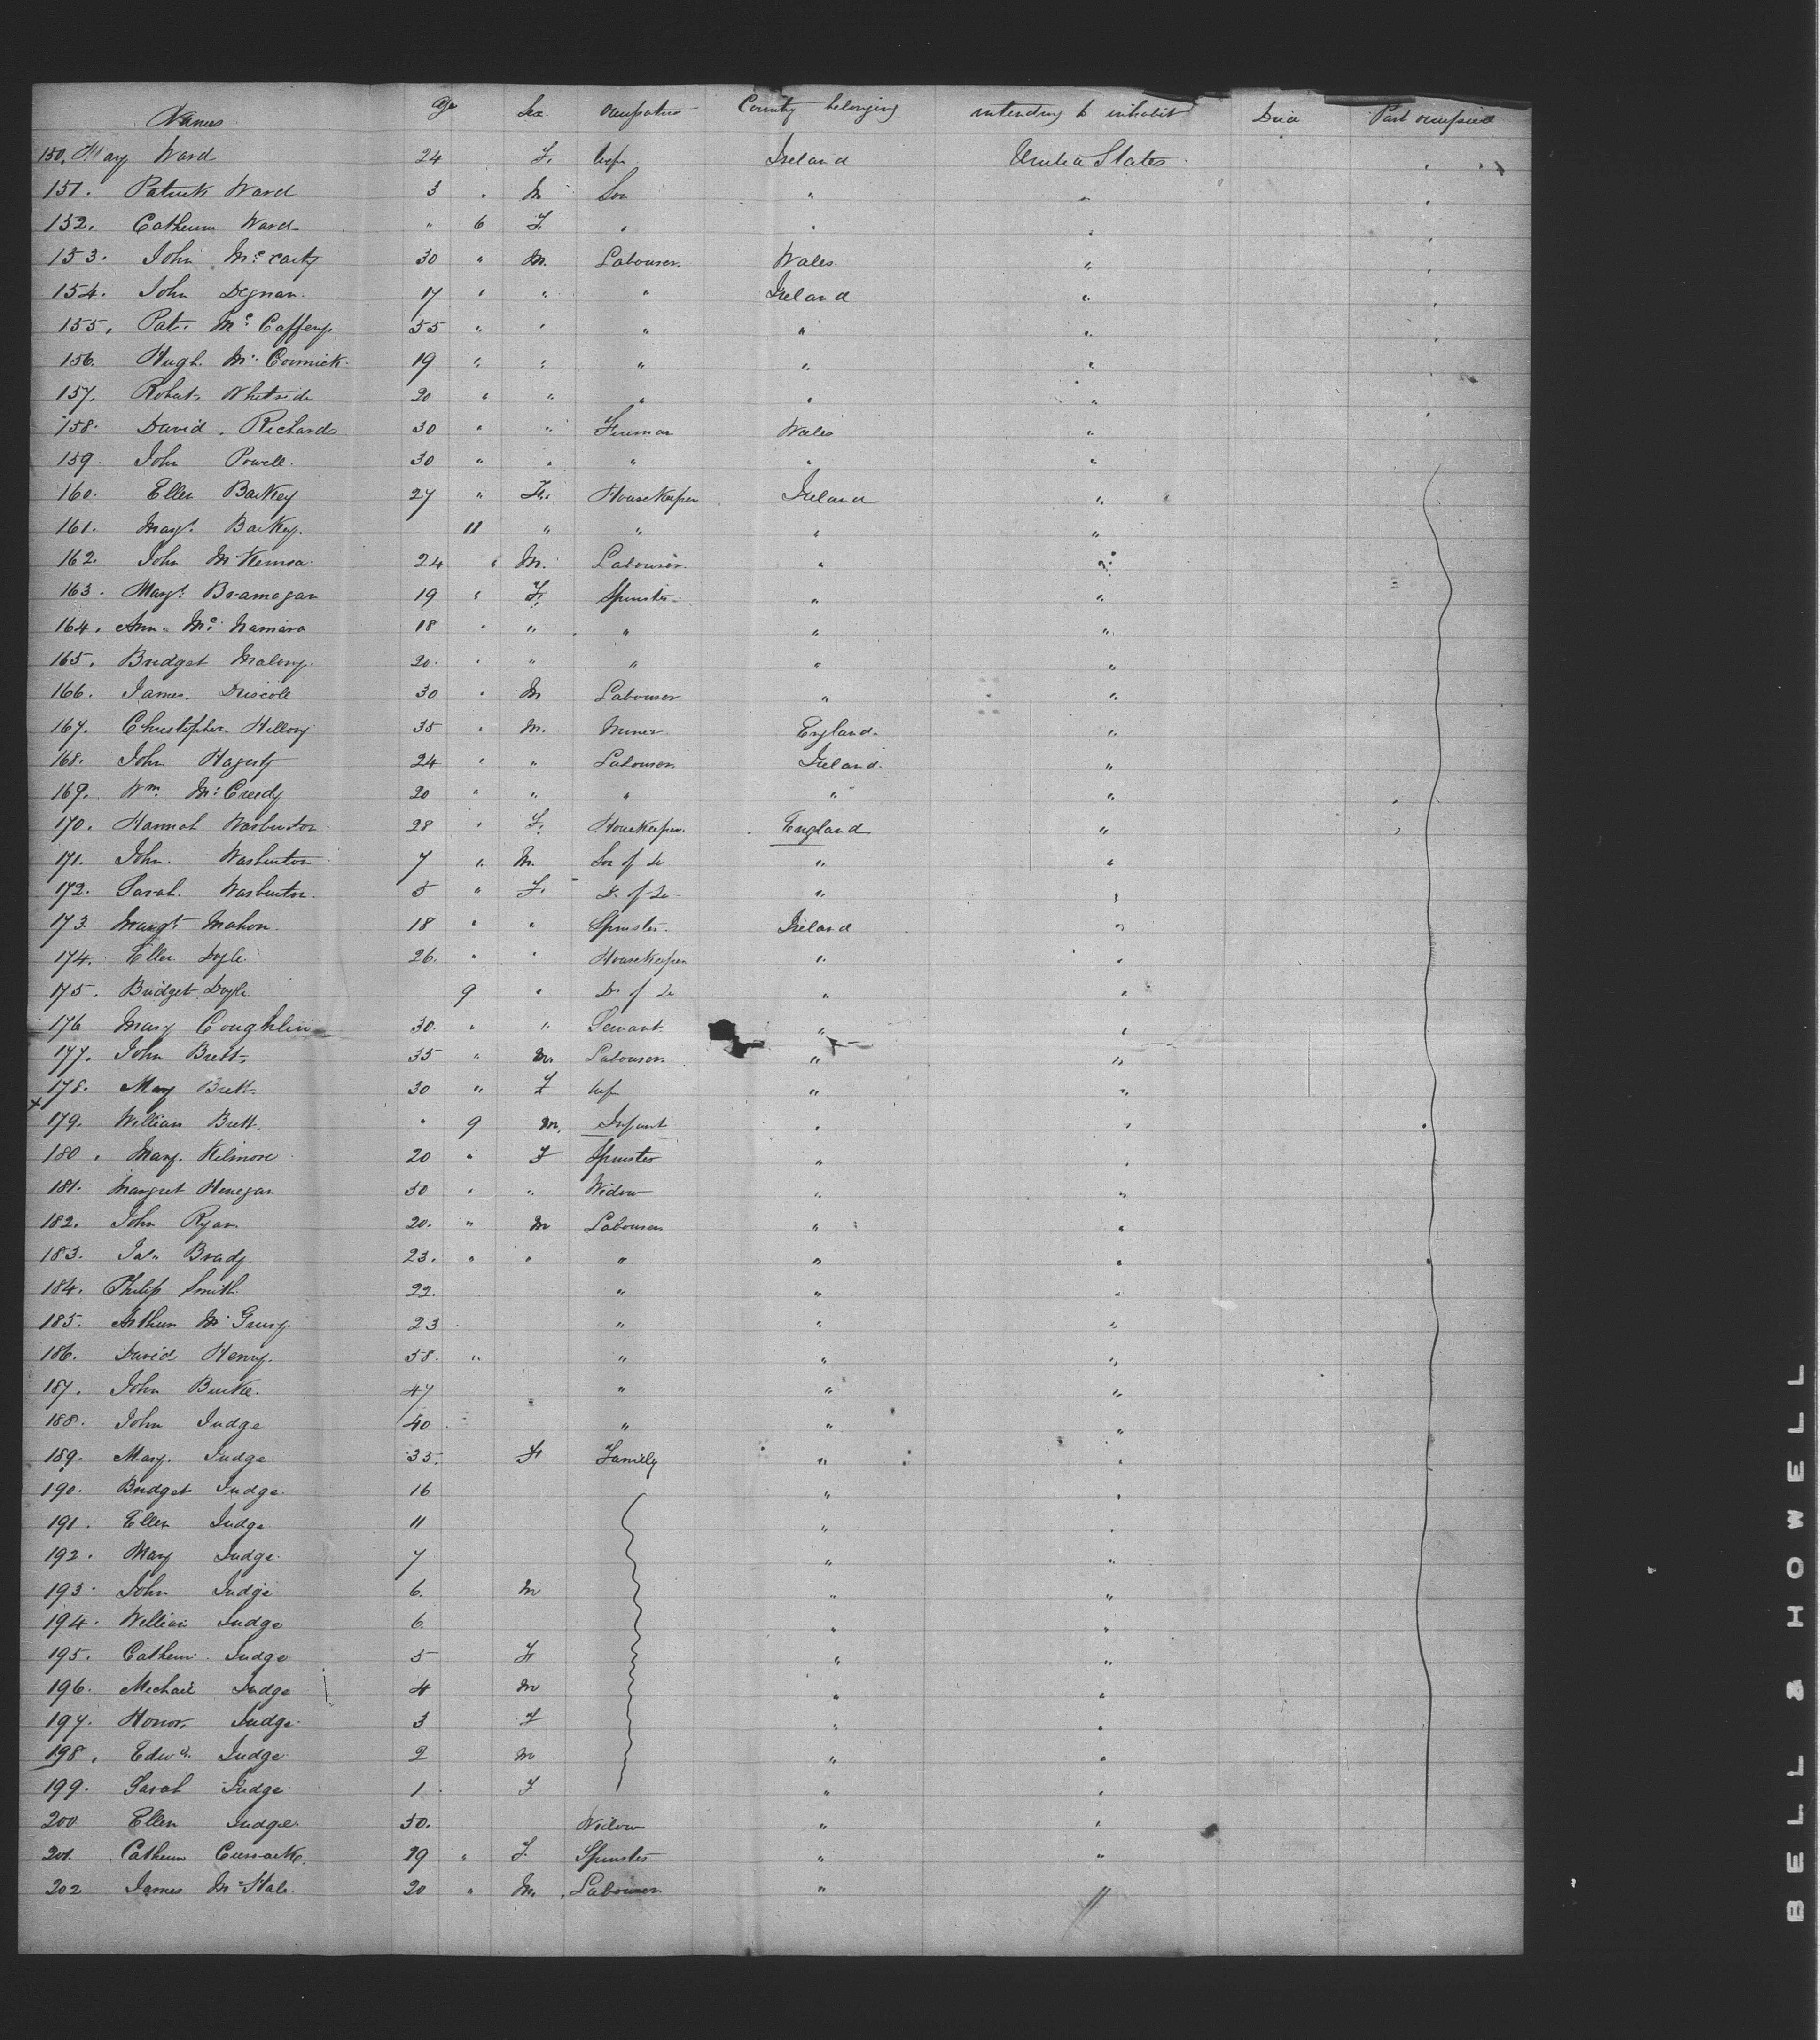 Names Age Sex. Occupation Country belonging intending to inhabit Died Part occupied
150. Mary Ward 24 F. Wife Ireland United States
151. Patrick Ward 3 " M Son " "
152. Catherine Ward " 6 F. " " "
153. John McCarty 30 " M. Labourer Wales "
154. John Degnan. 17 " " " Ireland "
155. Pat. Mc Caffery 55 " " " " "
156. Hugh Mc Cormick 19 " " " " "
157. Robert Whitside 20 " " " " "
158. David Richards 30 " " Fireman Wales "
159. John Powell. 30 " " " " "
160. Ellen Barkey 27 " F. Housekeeper Ireland "
161. Margt. Barkey. 11 " " " "
162. John 24 " M. Labourer " "
163. Margt. Bramagan 19 " F. Spinster " "
164. Ann Mc Namara 18 " " " " "
165. Bridget Malony. 20. " " " " "
166. James Driscoll 30 " M Labourer " "
167. Christopher Hillory 35 " M. Miner England. "
168. John Hagerty 24 " " Labourer Ireland. "
169. Wm. Mc Creedy 20 " " " " "
170. Hannah Warburton 28 " F. Housekeeper. England "
171. John Warburton 7 " M. Son of Do " "
172. Sarah Warburton. 5 " F. D. of Do " "
173. Margt Mahon. 18 " " Spinster Ireland "
174. Ellen Doyle. 26. " " Housekeeper " "
175. Bridget Doyle 9 " Dr of Do " "
176 Mary Coughlin 30. " " Servant. " "
177. John Brett. 35 " M. Labourer. " "
178. Mary Brett. 30 " F Wife " "
x 179. William Brett. " 9 M. Infant " "
180. Mary Kilmore 20 " F Spinster " "
181. Margret Henegan 30 " " Widow " "
182. John Ryan 20. " M Labourer " "
183. Jas. Brady 23. " " " " "
184. Philip Smith. 22. " " "
185. Arthur 23 " " "
186. David Henry. 58. " " " "
187. John Burke. 47 " " "
188. John Judge 40 " " "
189. Mary Judge 35. F Family " "
190. Bridget Judge. 16 " "
191. Ellen Judge 11 " "
192. Mary Judge 7 " "
193. John Judge 6. M " "
194. William Judge 6. " "
195. Catherine Judge 5 F " "
196. Michael Judge 4 M " "
197. Honor Judge 3 F " "
198. Edwd. Judge 2 M " "
199. Sarah Judge 1. F " "
200 Ellen Judge. 50. Widow " "
201. Catherine Cussack. 29 " F. Spinster " "
202 James McHale. 20 " M. Labourer " "
BELL & HOWELL